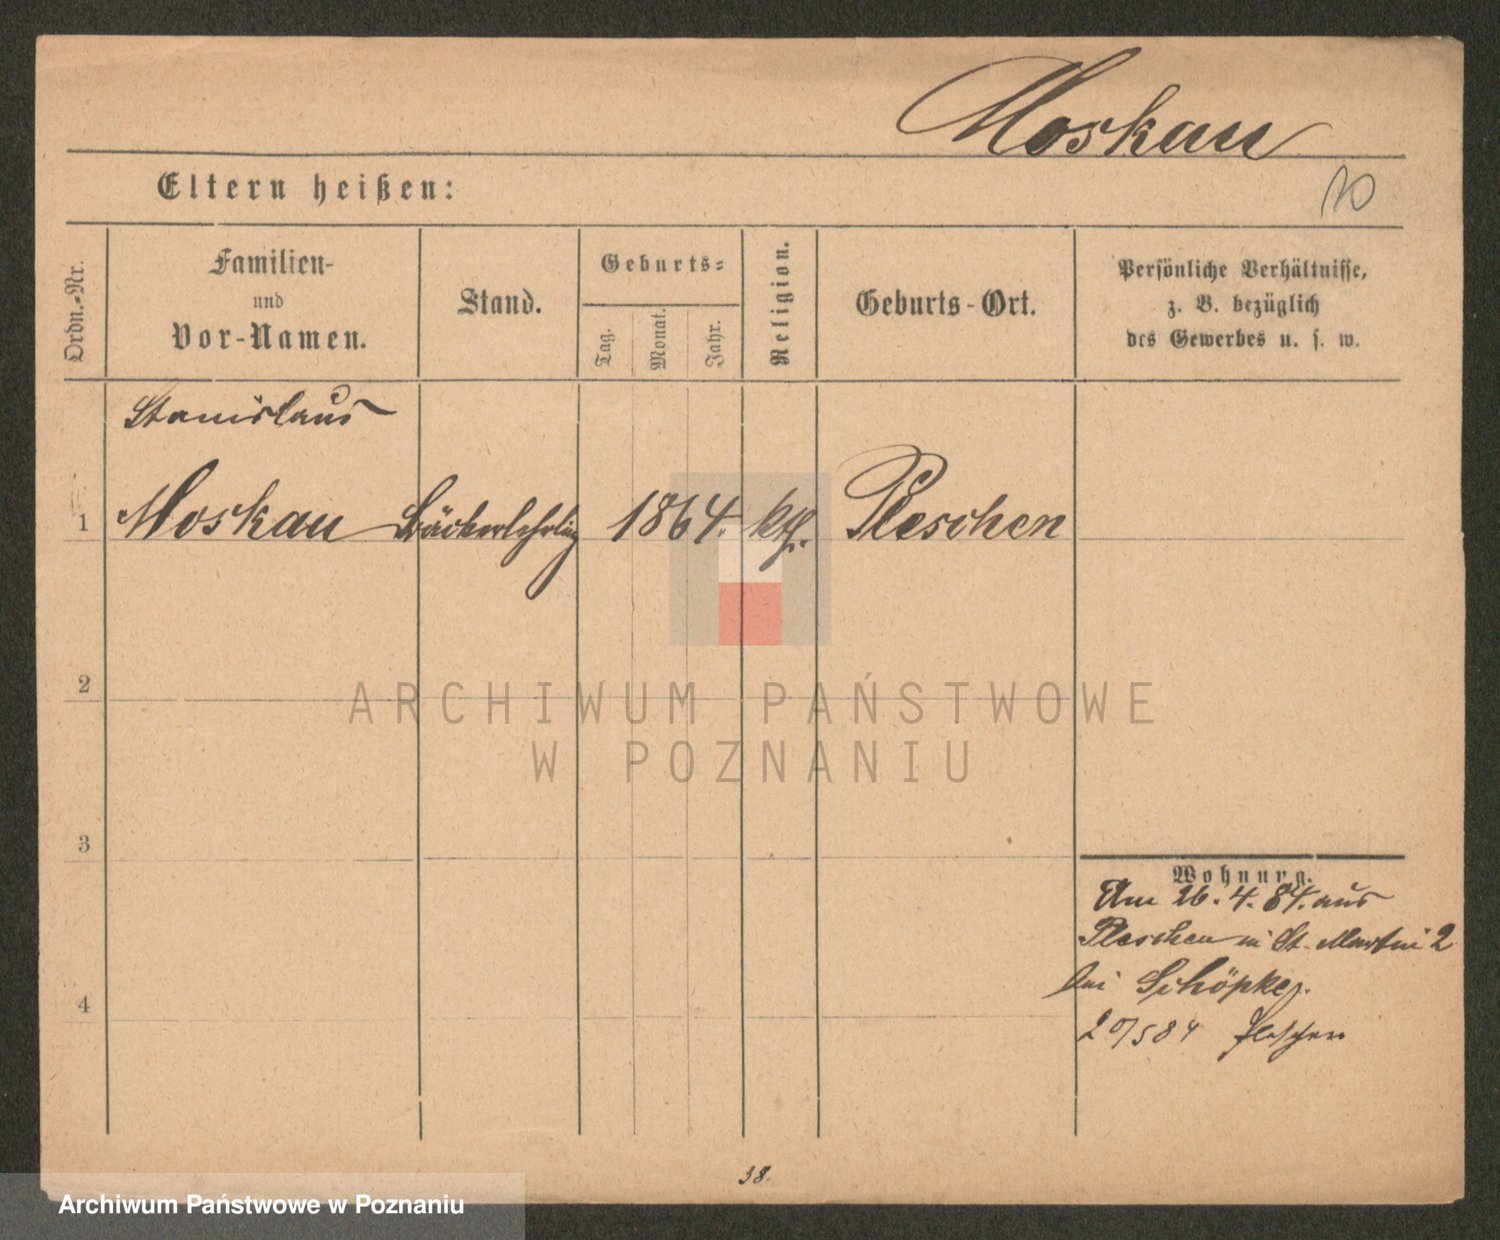 Moskau
10
Eltern heißen:
Ordn.-Nr.
Familien-
und
Vor-Namen.
Stand.
Geburts-
Tag.
Monat.
Jahr.
Religion.
Geburts-Ort.
Persönliche Verhältnisse,
z. B. bezüglich
des Gewerbes u. s. w.
Stanislaus
1 Moskau Bäckerlehrling 1864. kth. Pleschen
2
ARCHIWUM PAŃSTWOWE
W POZNANIU
3
Wohnung.
Am 26. 4. 84. aus
Pleschen in St. Martin 2
bei Schöpke.
20/5 84 Pleschen
4
38.
Archiwum Państwowe w Poznaniu